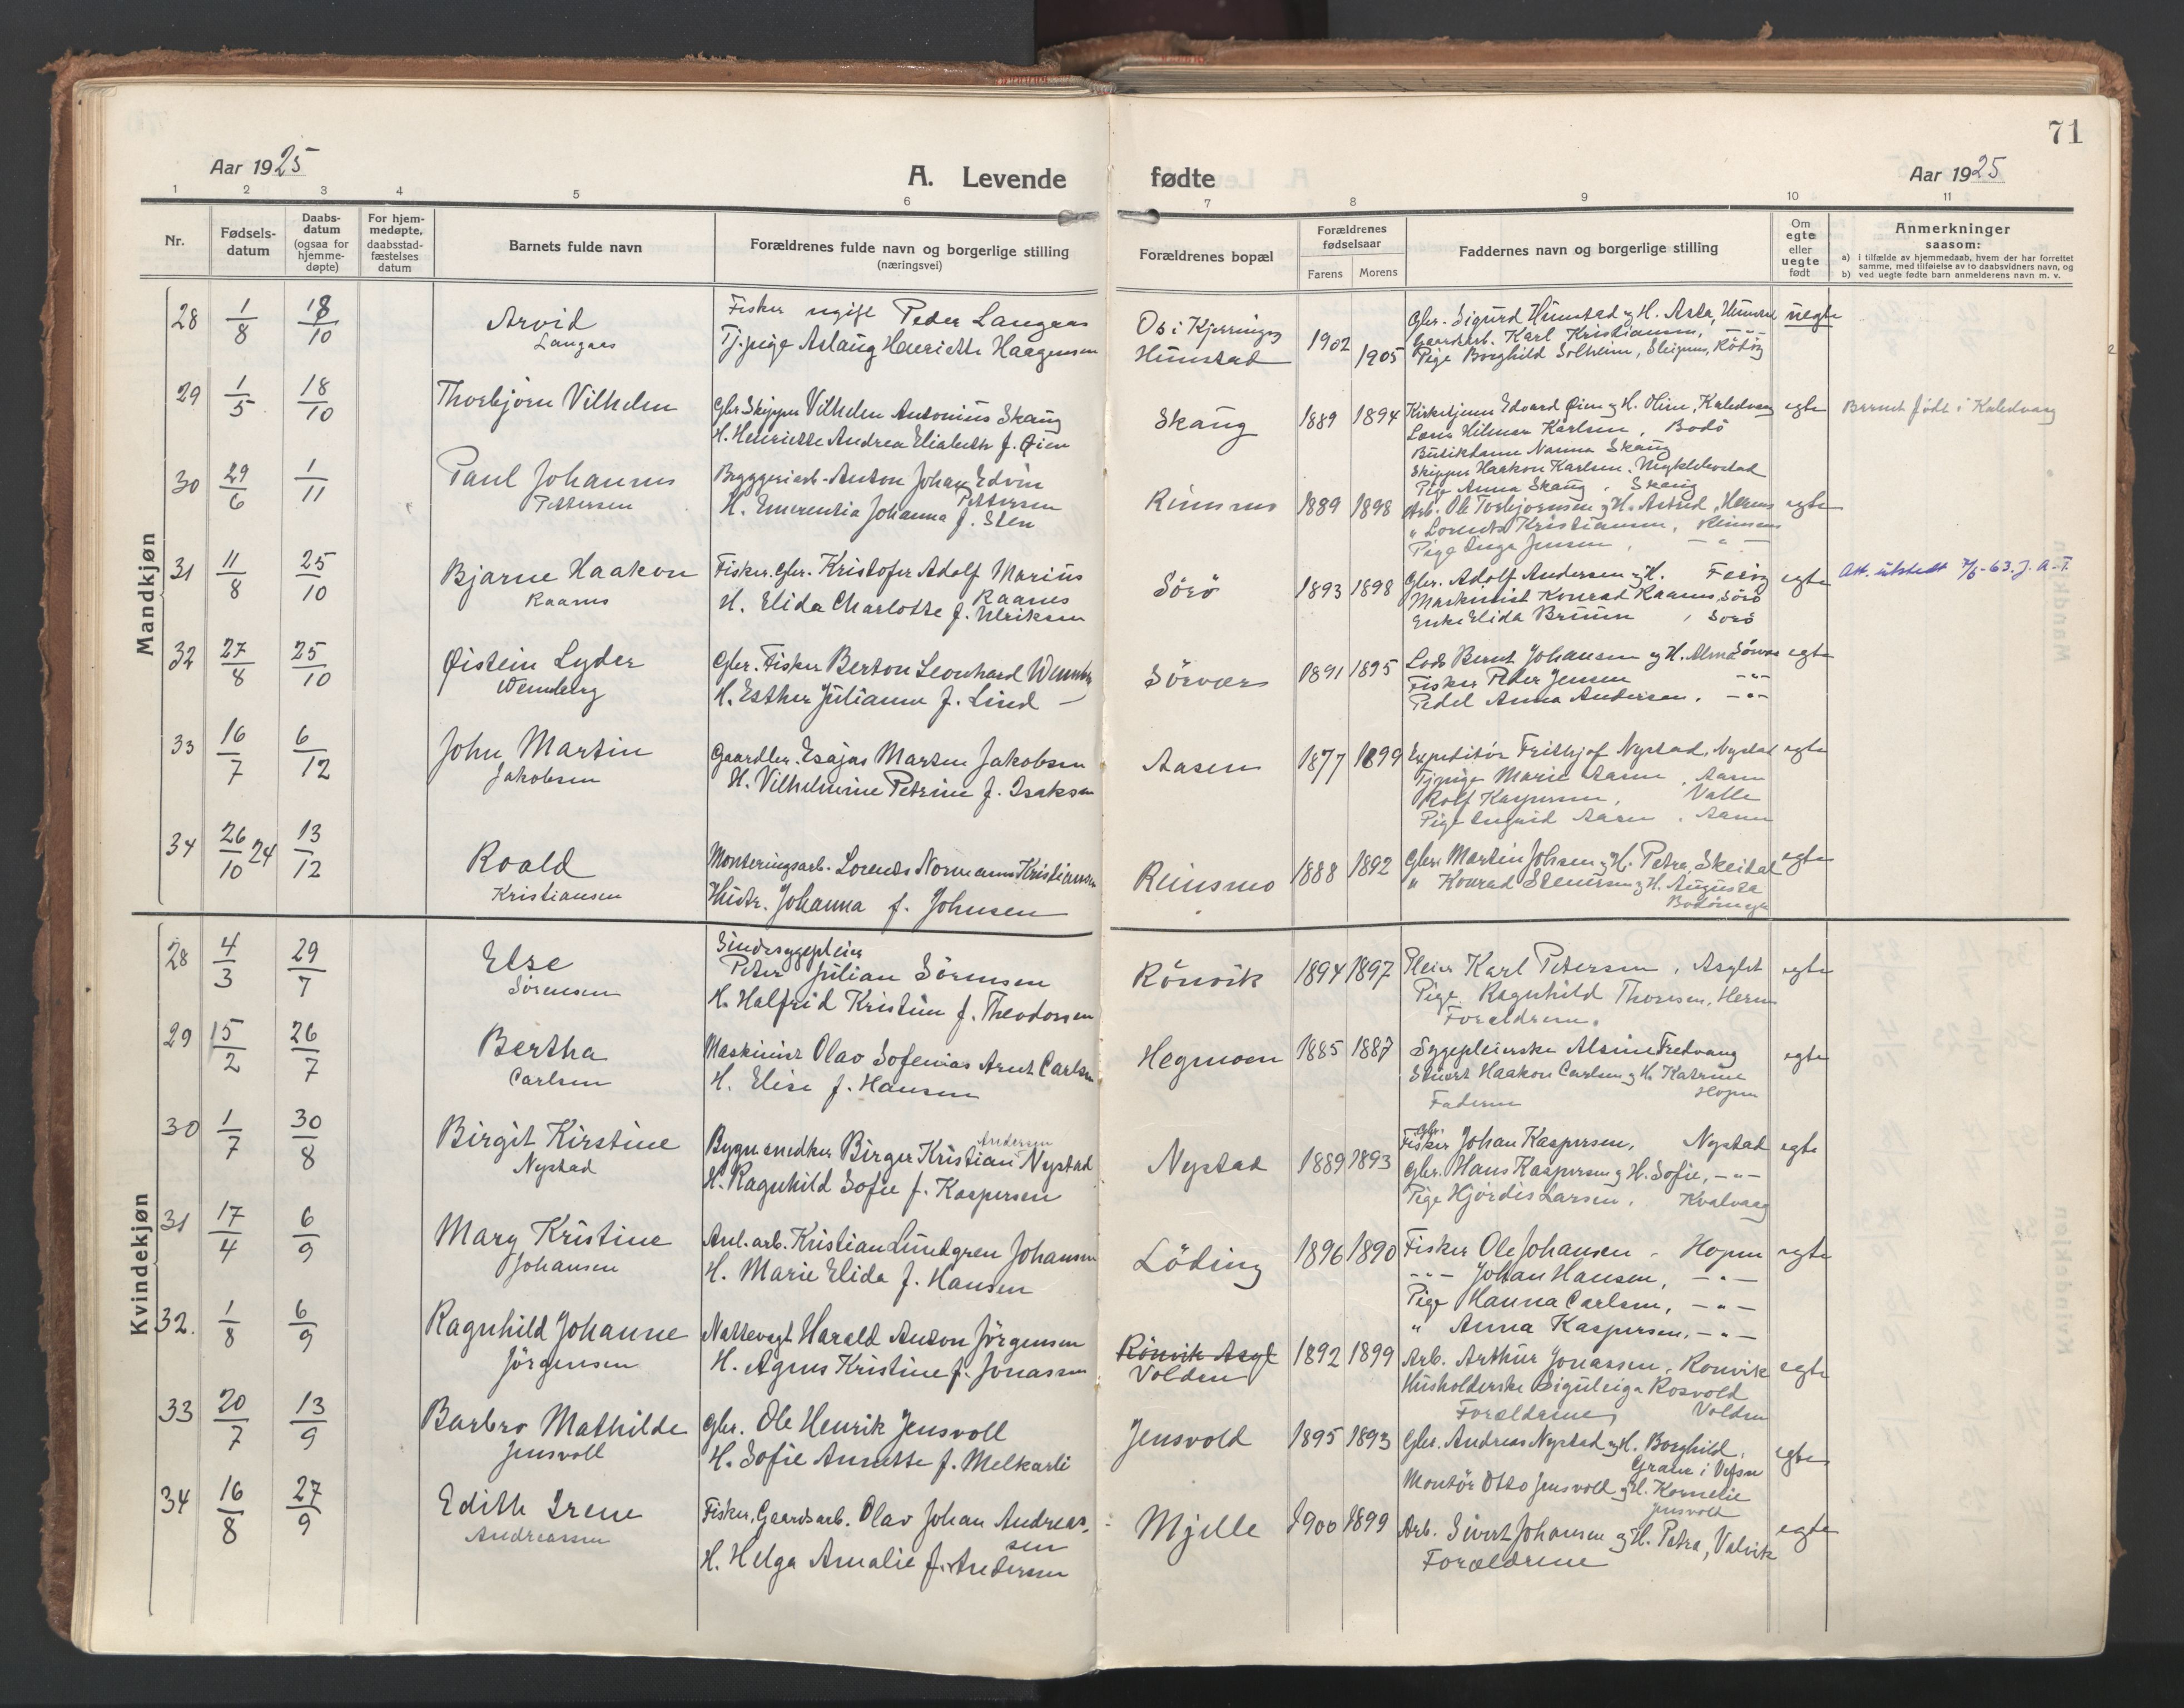 71
Aar 1925
A. Levende fødte
Aar 1925
1 2 3 4 5 6 7 8 9 10 11
Nr.
Fødsels-
datum
Daabs-
datum
(ogsaa for
hjemme-
døpte)
For hjem-
medøpte,
daabsstad-
fæstelses
datum
Barnets fulde navn
Forældrenes fulde navn og borgerlige stilling
(næringsvei)
Forældrenes bopæl
Forældrenes
fødselsaar
Farens Morens
Faddernes navn og borgerlige stilling
Om
egte
eller
uegte
født
Anmerkninger
saasom:
a) i tilfælde av hjemmedaab, hvem der har forrettet
samme, med tilføielse av to daabsvidners navn, og
b) ved uegte fødte barn anmelderens navn m. v.
Mandkjøn
28 1/8 18/10
Arvid
Langaas
Fisker ugift Peder Langaas
Tj.pige Aslaug Henriette Haagensen
Os i Kjerringøy
Hunstad
1902 1905
Gbr. Sigurd Hunstad og H. Asta, Hunstad
Gaardsarb. Karl Kristiansen, -"-
Pige Borghild Solheim, Rödöy
uegte
29 1/5 18/10
Thorbjørn Vilhelm
Gbr. Skipper Vilhelm Antonius Skaug
H. Henriette Andrea Elisabeth f. Øien
Skaug
1889 1894
Kirketjener Edvard Øien og H. Oline, Kaledvaag
Hilmar Karlsen, Bodö
Butikdame Nanna Skaug
Skipper Haakon Karlsen, Nyklebostad
Pige Anna Skaug, Skaug
egte
Barnet født i Kaledvaag
30 29/6 1/11
Paul Johannes
Pettersen
Bryggeriarb. Anton Johan Edvin
Pettersen
H. Emerentia Johanna f. Sten
Reinsmo
1889 1898
Arb. Ole Torbjørnsen og H. Astrid, Hernes
" Lorents Kristiansen, Reinsmo
Pige Inga Jensen, -"-
egte
31 11/8 25/10
Bjarne Haakon
Raanes
Fisker. Gbr. Kristofer Adolf Marius
Raanes
H. Elida Charlotte f. Ulriksen
Sörö
1893 1898
Gbr. Adolf Andersen og H.
Maskinist Konrad Raanes, Sörö
Enke Elida Bruun, Sörö
egte
Att. utstedt 7/5-63. J. A. T.
32 27/8 25/10
Øistein Lyder
Wennberg
Gbr. Fisker Berton Leonhard Wennberg
H. Esther Julianne f. Lind
Sörvær
1891 1895
Lods Bernt Johansen og H. Alma Sörvær
Fisker Peder Jensen -"-
Anna Andersen. -"-
egte
33 16/7 6/12
John Martin
Jakobsen
Gaardbr. Esajas Marten Jakobsen
H. Vilhelmine Petrine f. Isaksen
Aasen
1877 1899
Expeditör Frithjof Nystad, Nystad
Tj.pige Marie Aasen, Aasen
Rolf Kaspersen, Valle
Pige Ingrid Aasen, Aasen
egte
34 26/10 24 13/12
Roald
Kristiansen
Monteringsarb. Lorents Normann Kristiansen
Hustr. Johanna f. Johnsen
Reinsmo
1888 1892
Gbr. Martin Johsen og H. Petra, Skeidal
" Konrad Steinrsen og H. Augusta
egte
Kvindekjøn
28 4/3 29/7
Else
Sörensen
Sindssygepleier
Peter Julian Sörensen
H. Halfrid Kristine f. Theodorsen
Rönvik
1894 1897
Pleier Karl Petersen, Asylet
Pige Ragnhild Thoresen, Hernes
Forældrene.
egte
29 15/2 26/7
Bertha
Carlsen
Maskinist Olav Sofenias Arnt Carlsen
H. Elise f. Hansen
Hegmoen
1885 1887
Sygepleierske Alsine Tredvang
Stuert Haakon Carlsen og H. Katrine
Hopen
Faderen
egte
30 1/7 30/8
Birgit Kirstine
Nystad
Andersen
Bygn.snedker Birger Kristian Nystad
H. Ragnhild Sofie f. Kaspersen
Nystad
1889 1893
Gbr.
Fisker Johan Kaspersen, Nystad
Gbr. Hans Kaspersen og H. Sofie, -"-
Pige Hjördis Larsen, Kvalvaag
egte
31 17/4 6/9
Mary Kristine
Johansen
Anl. arb. Kristian Lundgren Johansen
H. Marie Elida f. Hansen
Löding
1896 1890
Fisker Ole Johansen, Hopen
-"- Johan Hansen, -"-
Pige Hanna Carlsen, -"-
" Anna Kaspersen, -"-
egte
32. 1/8 6/9
Ragnhild Johanne
Jörgensen
Nattevagt Harald Anton Jörgensen
H. Agnes Kristine f. Jonassen
Rönvik Asyl
Volden
1892 1899
Arb. Arthur Jonassen, Ronvik
Husholderske Rosvold
Volden
Forældrene,
egte
33 20/7 13/9
Barbro Mathilde
Jensvoll
Gbr. Ole Henrik Jensvoll
H. Sofie Annette f. Melkarli
Jensvold
1895 1893
Gbr. Andreas Nystad og H. Borghild,
Grane i Vefsn
Montör Otto Jensvold og H. Kornelie
Jensvoll
egte
34 16/8 27/9
Edith Irene
Andreassen
Fisker, Gaardsarb. Olav Johan Andreas-
sen
H. Helga Amalie f. Andersen
Mjelle
1900 1899
Arb. Sivert Johansen og H. Petra, Valvik
Forældrene
egte